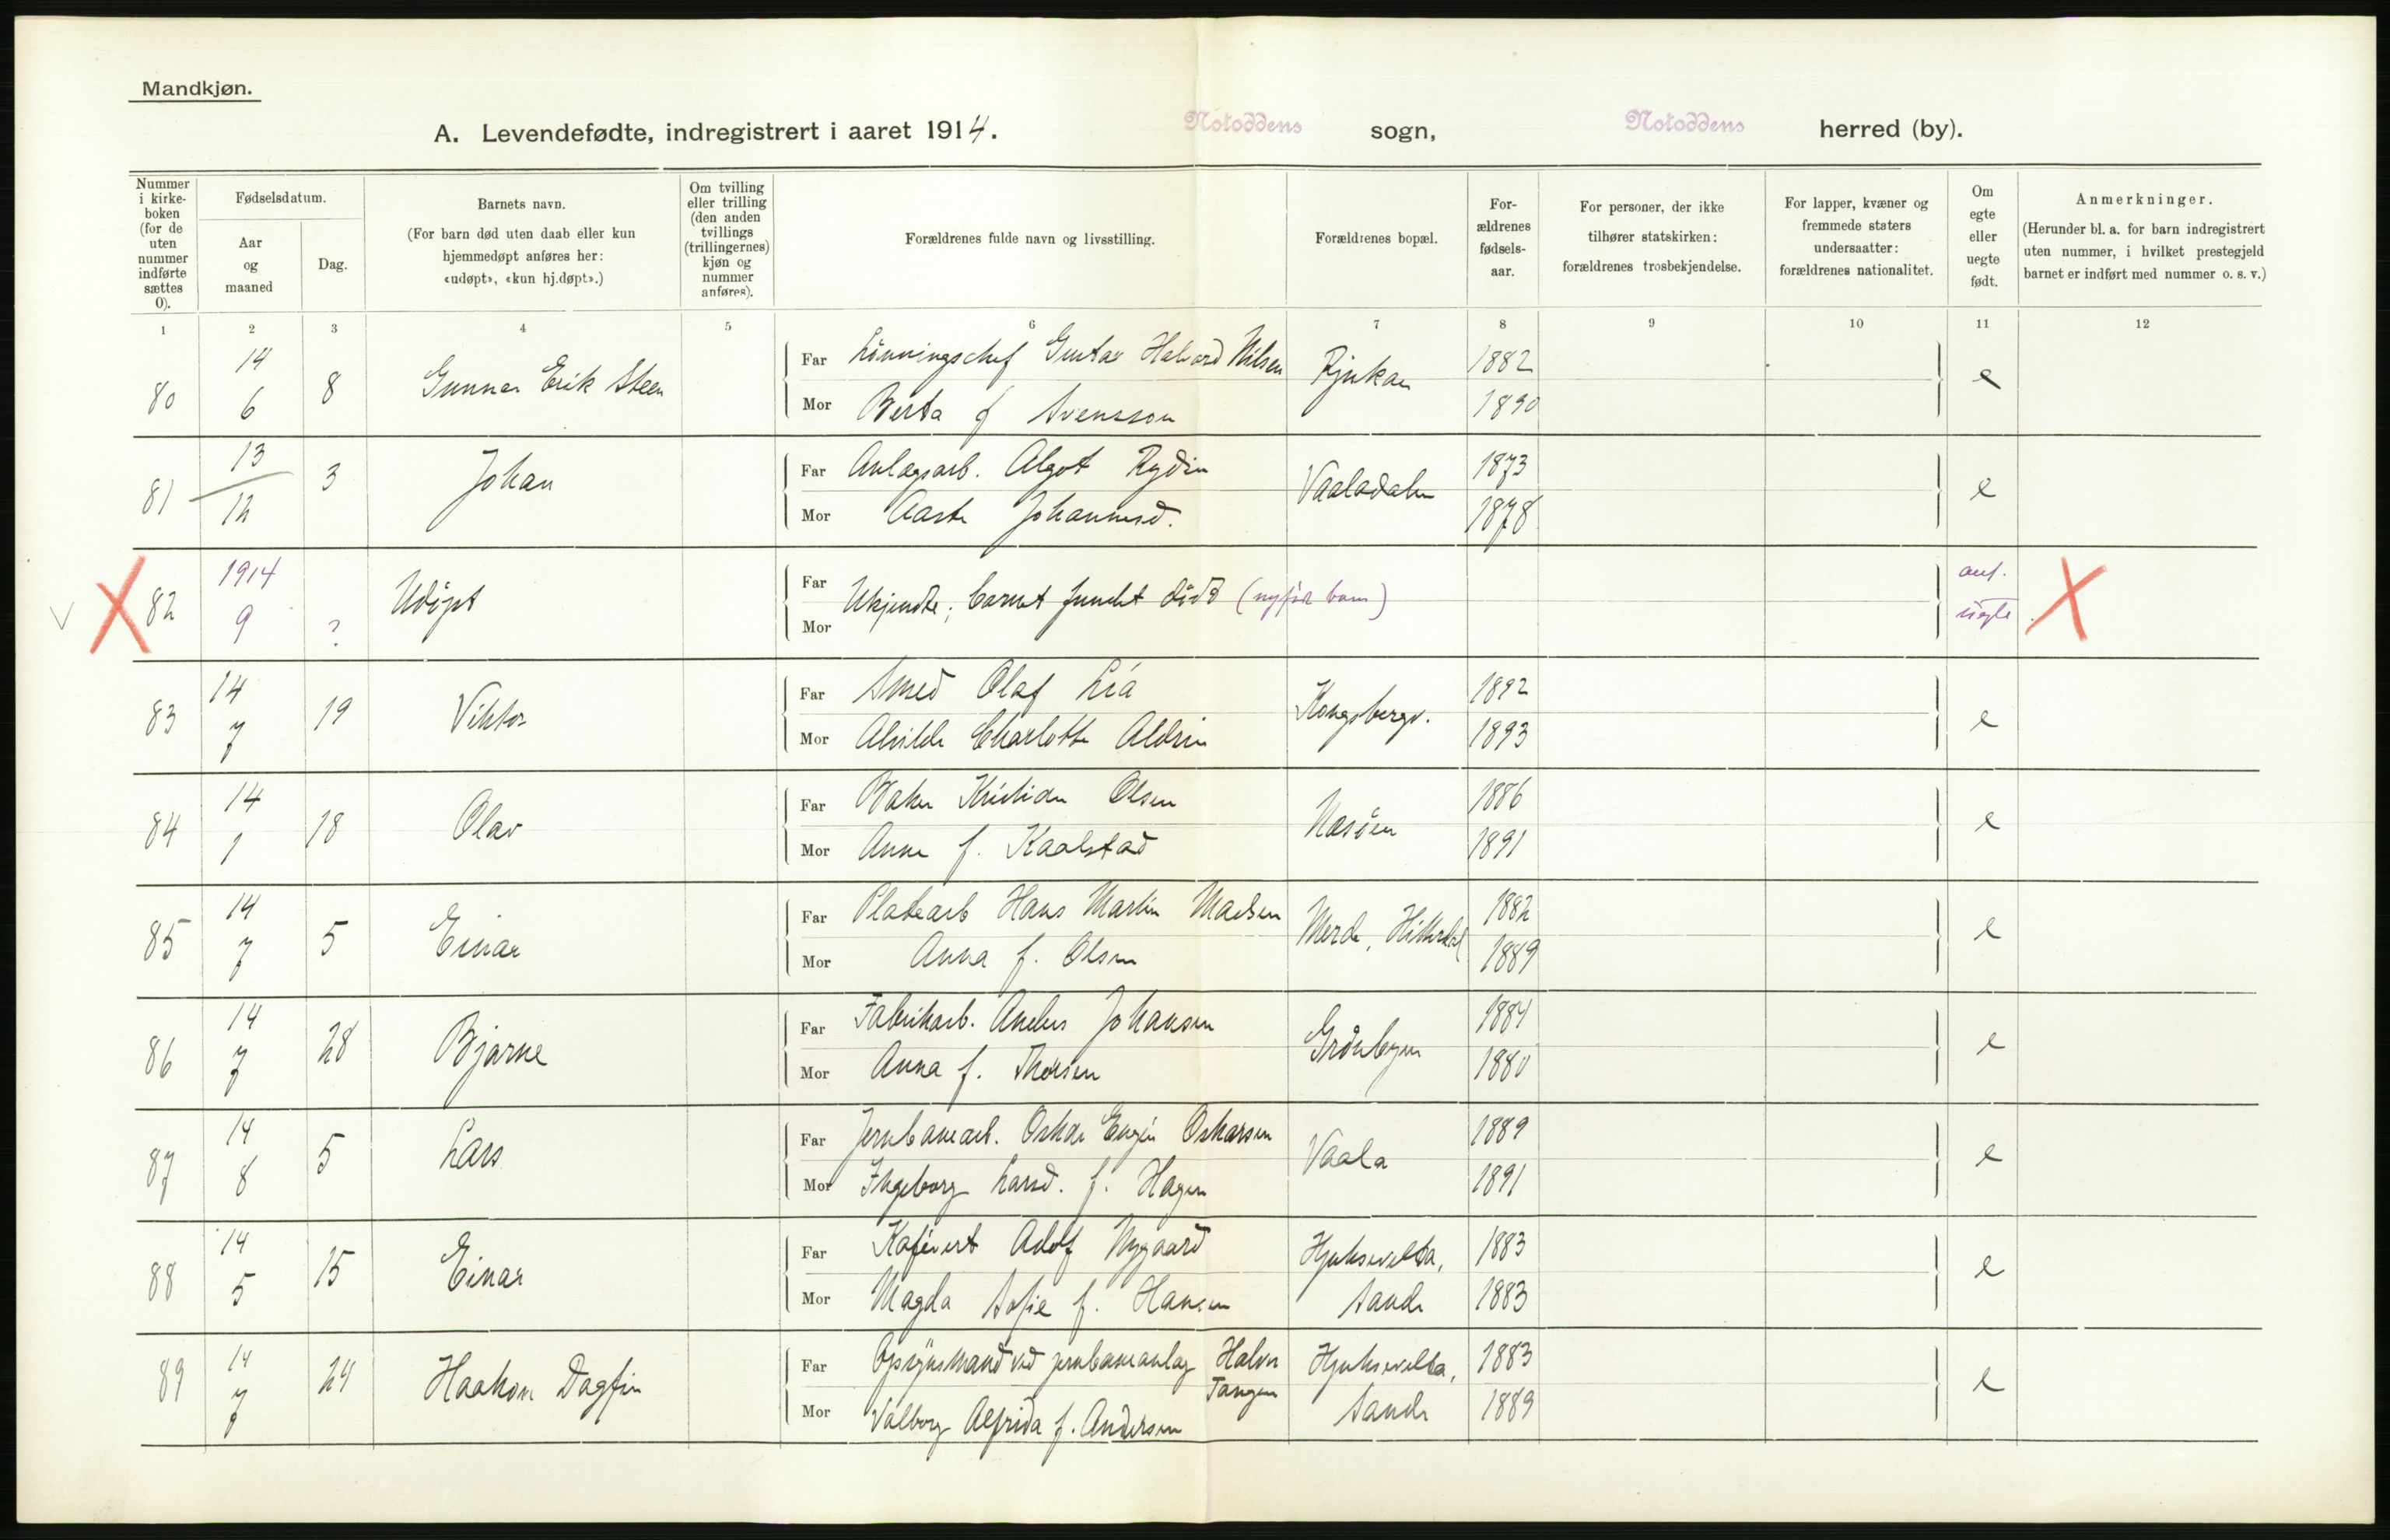 Mandkjøn.
A. Levendefødte, indregistrert i aaret 1914. Notoddens sogn, Notoddens herred (by).
Nummer i kirke-boken (for de uten nummer indførte sættes 0).
Fødselsdatum.
Aar og maaned
Dag.
Barnets navn.
(For barn død uten daab eller kun hjemmedøpt anføres her: «udøpt», «kun hj.døpt».)
Om tvilling eller trilling (den anden tvillings (trillingernes) kjøn og nummer anføres).
Forældrenes fulde navn og livsstilling.
Forældrenes bopæl.
For-ældrenes fødsels-aar.
For personer, der ikke tilhører statskirken: forældrenes trosbekjendelse.
For lapper, kvæner og fremmede staters undersaatter: forældrenes nationalitet.
Om egte eller uegte født.
Anmerkninger.
(Herunder bl. a. for barn indregistrert uten nummer, i hvilket prestegjeld barnet er indført med nummer o. s. v.)
1 2 3 4 5 6 7 8 9 10 11 12
80 14 6 8 Gunnar Erik Steen Far Lönningschef Gustav Halvard Nilsen Rjukan 1882 e
Mor Berta f Svensson 1890
81 13 12 3 Johan Far Anlægsarb. Algot Rydin Vaaladalen 1873 e
Mor Aaste Johannesd. 1878
V X 82 1914 9 ? Udöpt Far Ukjendte; barnet fundet död (nyfödt barn) ant. uegte X
Mor
83 14 7 19 Viktor Far Smed Olaf Lia Kongsbergv. 1892 e
Mor Alvilde Charlotte Aldrin 1893
84 14 1 18 Olav Far Baker Kristian Olsen Næsöen 1886 e
Mor Anne f. Kaalstad 1891
85 14 7 5 Einar Far Platearb Hans Martin Madsen Merde, Hitterdal 1882 e
Mor Anna f. Olsen 1889
86 14 7 28 Bjarne Far Fabrikarb. Anders Johansen Grönbyen 1884 e
Mor Anna f. Thorsen 1880
87 14 8 5 Lars Far Jernbanearb. Oskar Eugen Oskarsen Vaala 1889 e
Mor Ingeborg Larsd. f. Hagen 1891
88 14 5 15 Einar Far Kafévert Adolf Nygaard Hjuksevelta, 1883 e
Mor Magda Sofie f. Hansen Sande 1883
89 14 7 24 Haakon Dagfin Far Opsynsmand ved jernbaneanlæg Halvor Tangen Hjuksevelta, 1883 e
Mor Valborg Alfrida f. Andersen Sande 1889